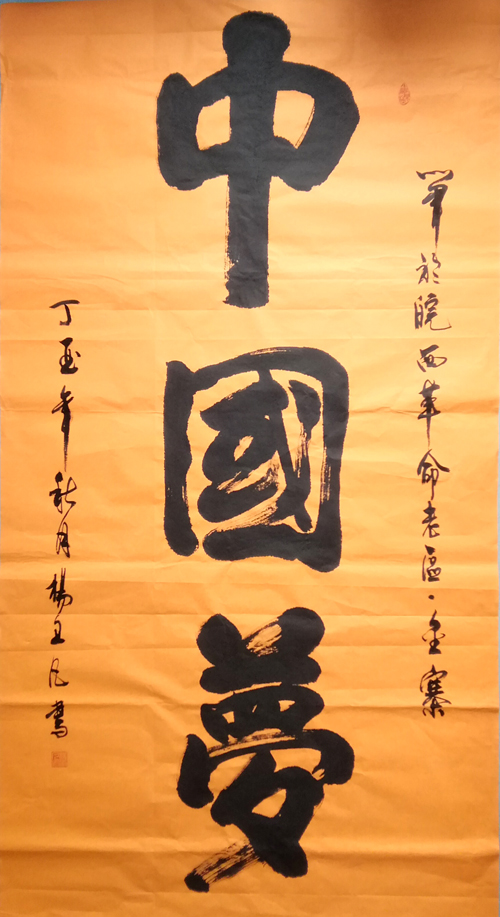 筆於皖西革命老區·金寨
中國夢
丁酉年秋月楊玉凡